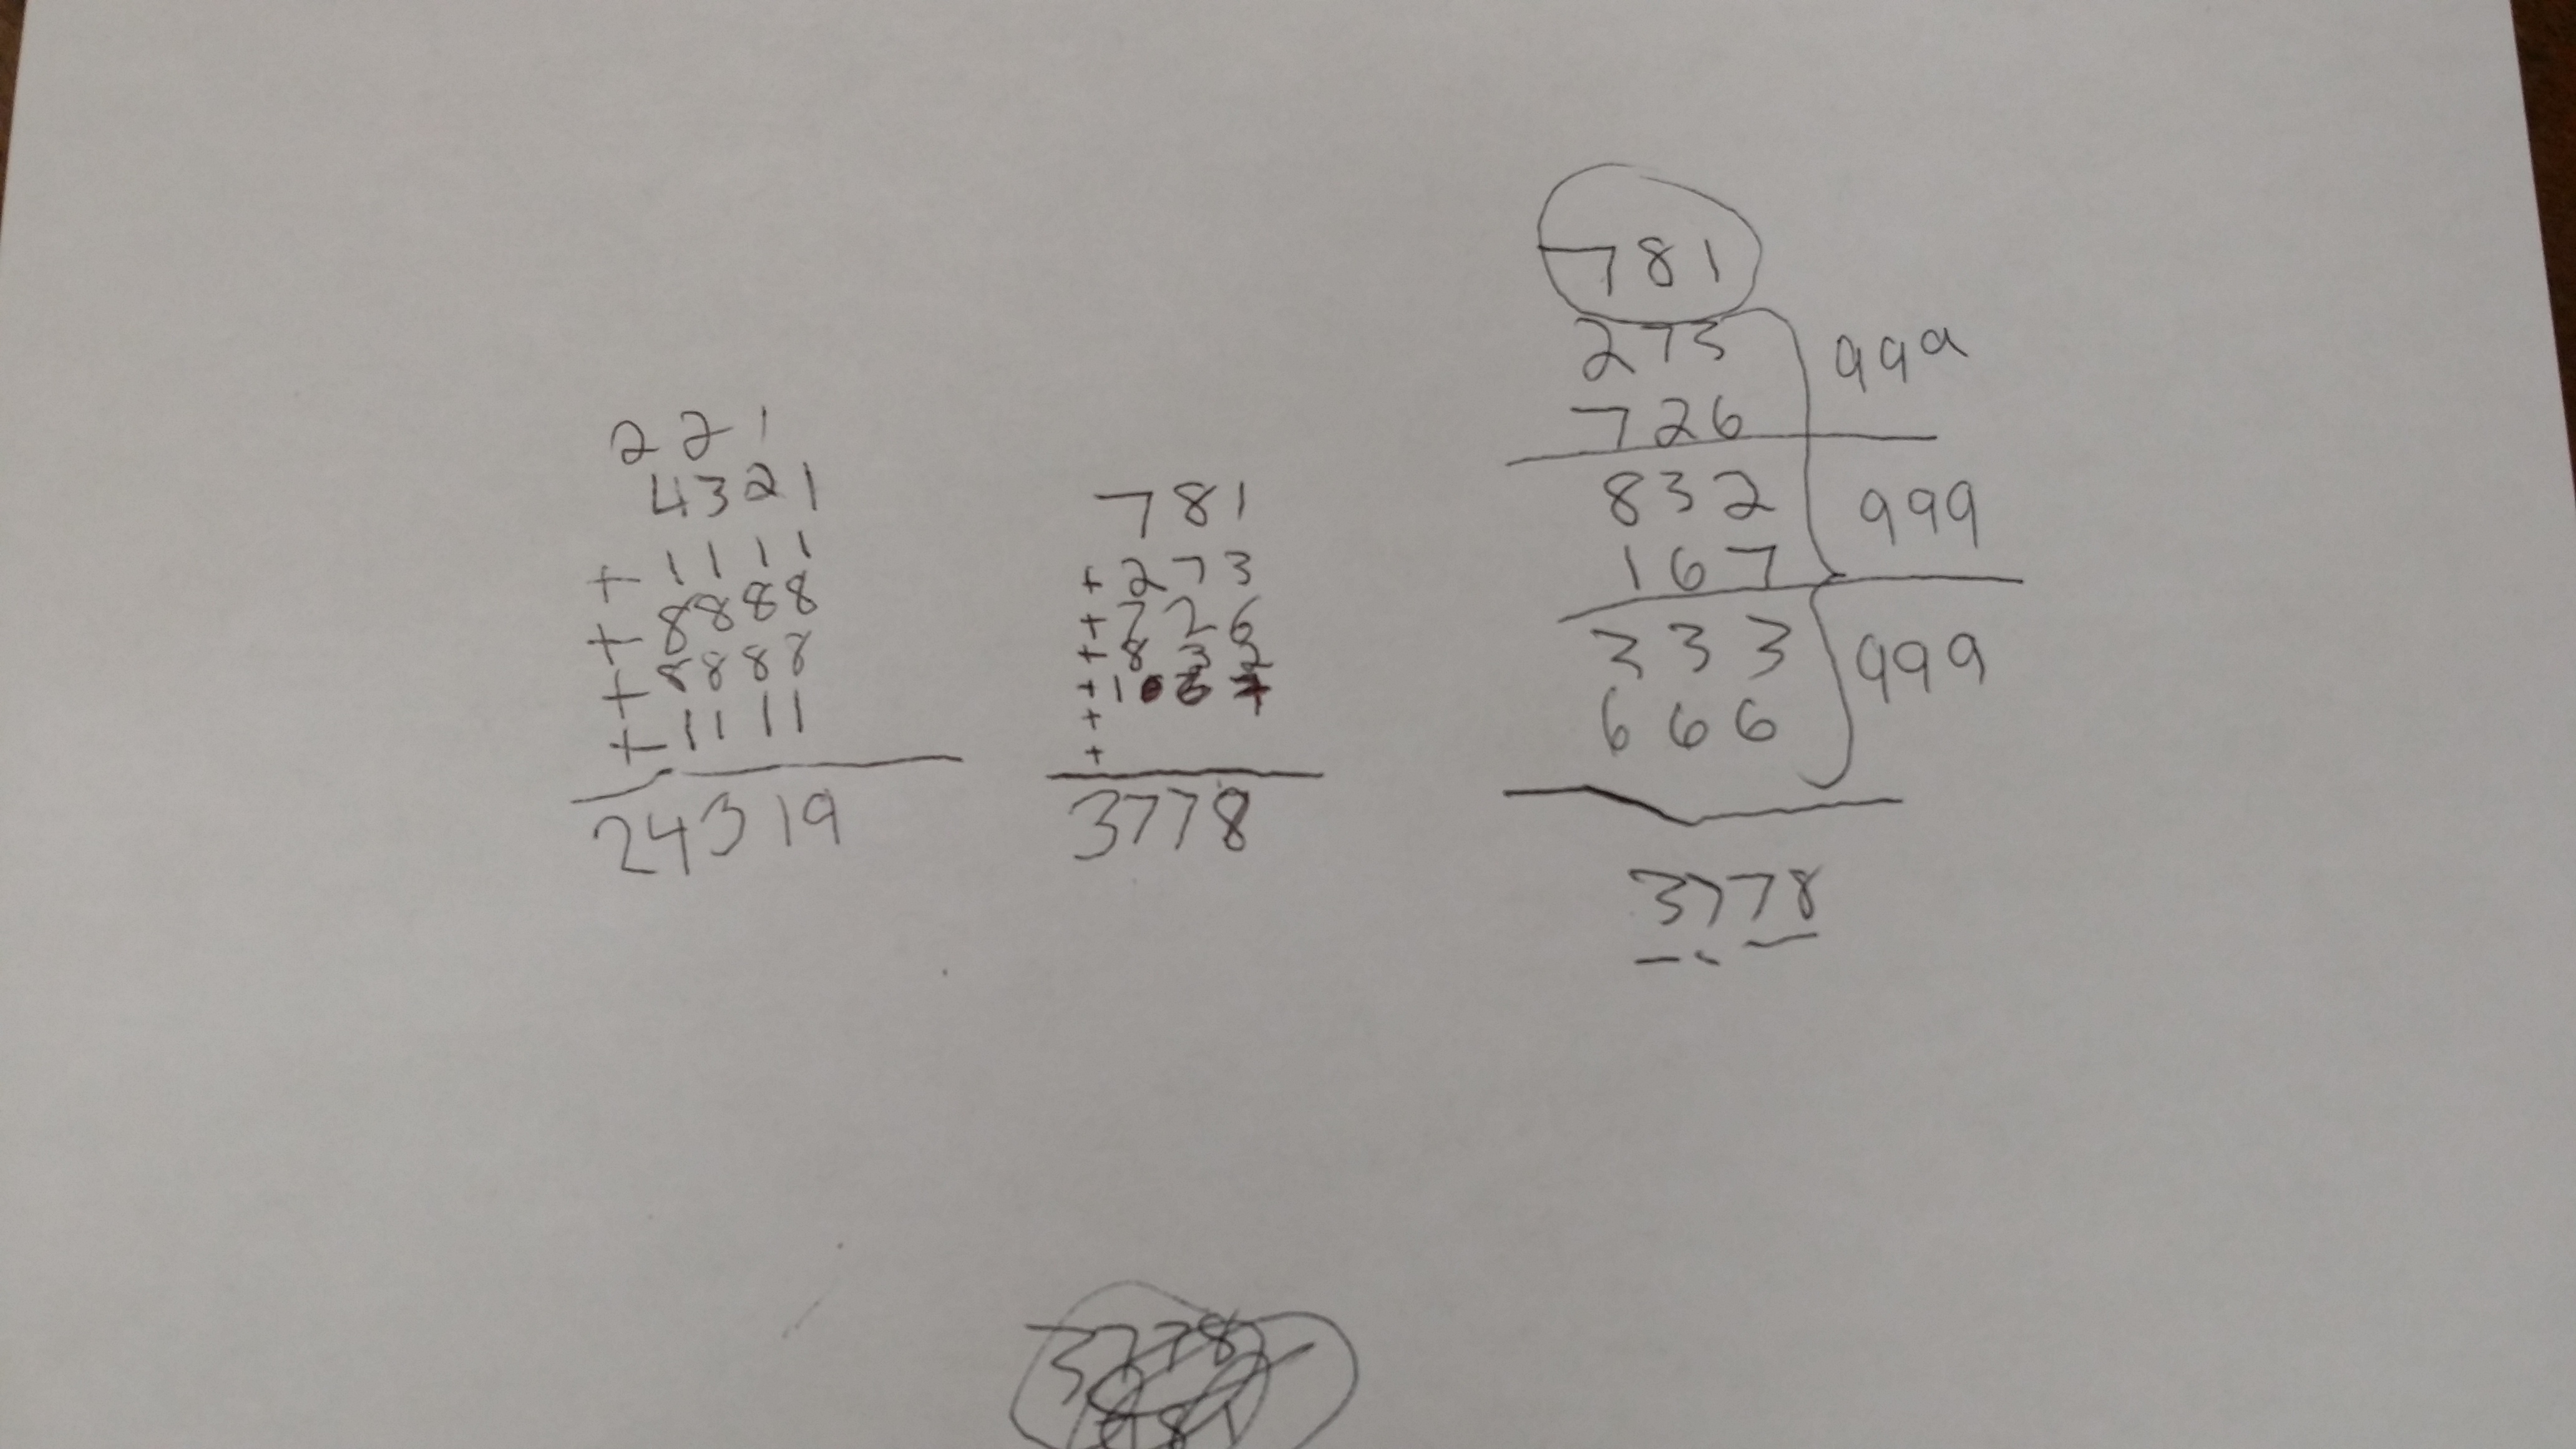 2 2 1
4321
+ 1111
+ 8888
+ 8888
+ 1111
24319
781
+ 273
+ 726
+ 832
+
+
3778
781
273
726
999
832
167
999
333
666
999
3778